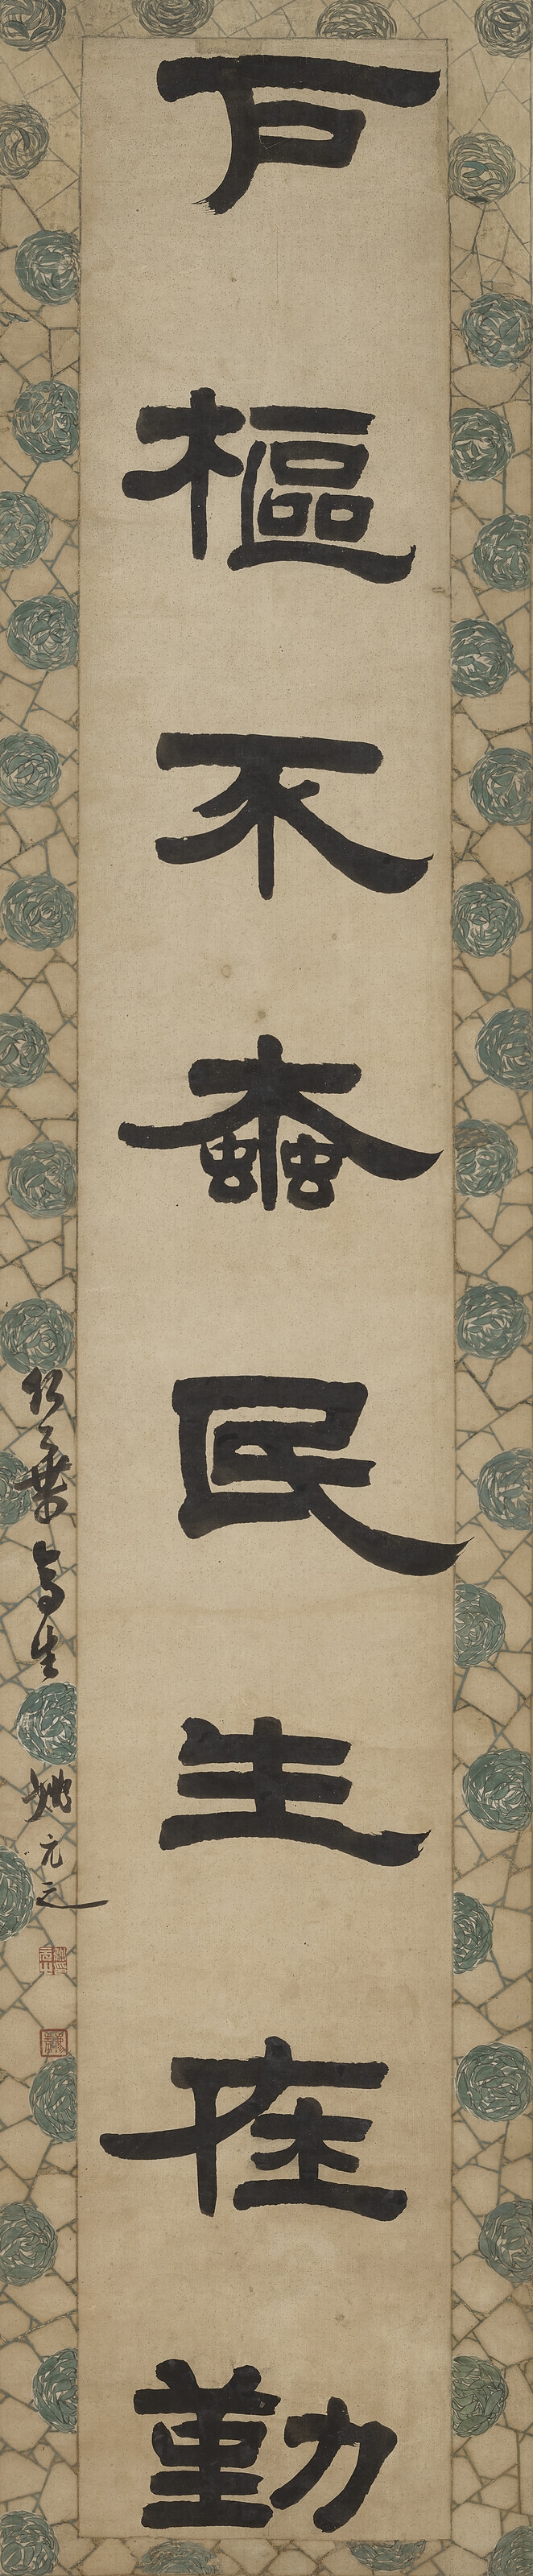 戶樞不蠹民生在勤
姚元之